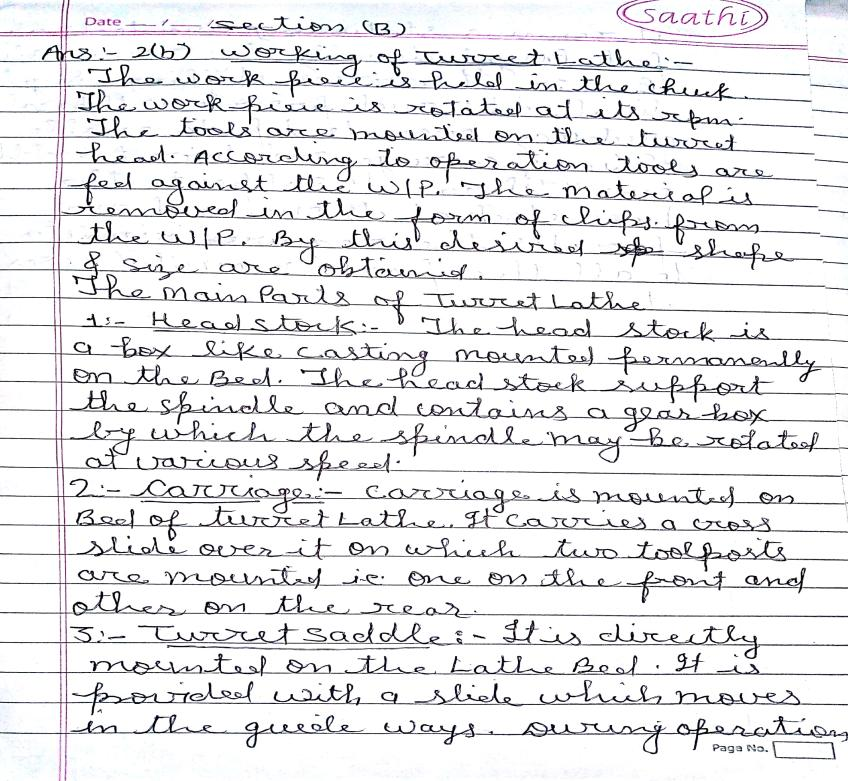 Date __/__/__ Section (B)
Saathi
Ans:- 2(b) Working of Turret Lathe:-
The work piece is held in the chuck.
The work piece is rotated at its rpm.
The tools are mounted on the turret
head. According to operation tools are
fed against the W/P. The material is
removed in the form of chips from
the W/P. By this desired shape
& size are obtained.
The Main Parts of Turret Lathe
1:- Head stock:- The head stock is
a box like casting mounted permanently
on the Bed. The head stock support
the spindle and contains a gear box
by which the spindle may be rotated
at various speed.
2:- Carriage:- Carriage is mounted on
Bed of turret Lathe. It carries a cross
slide over it on which two toolposts
are mounted i.e. one on the front and
other on the rear.
3:- Turret Saddle:- It is directly
mounted on the Lathe Bed. It is
provided with a slide which moves
in the guide ways. During operation
Page No.